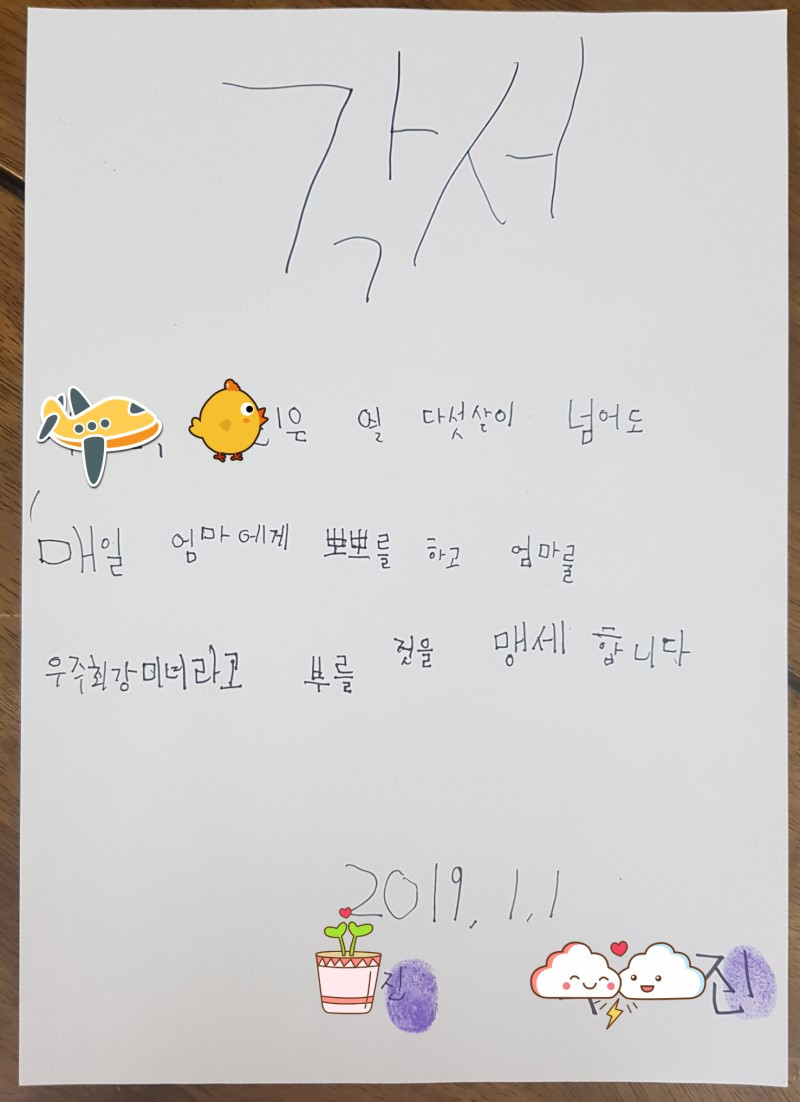 각서
은 열 다섯살이 넘어도
매일 엄마에게 뽀뽀를 하고 엄마를
우주최강미녀라고 부를 것을 맹세 합니다
2019. 1. 1
진 진